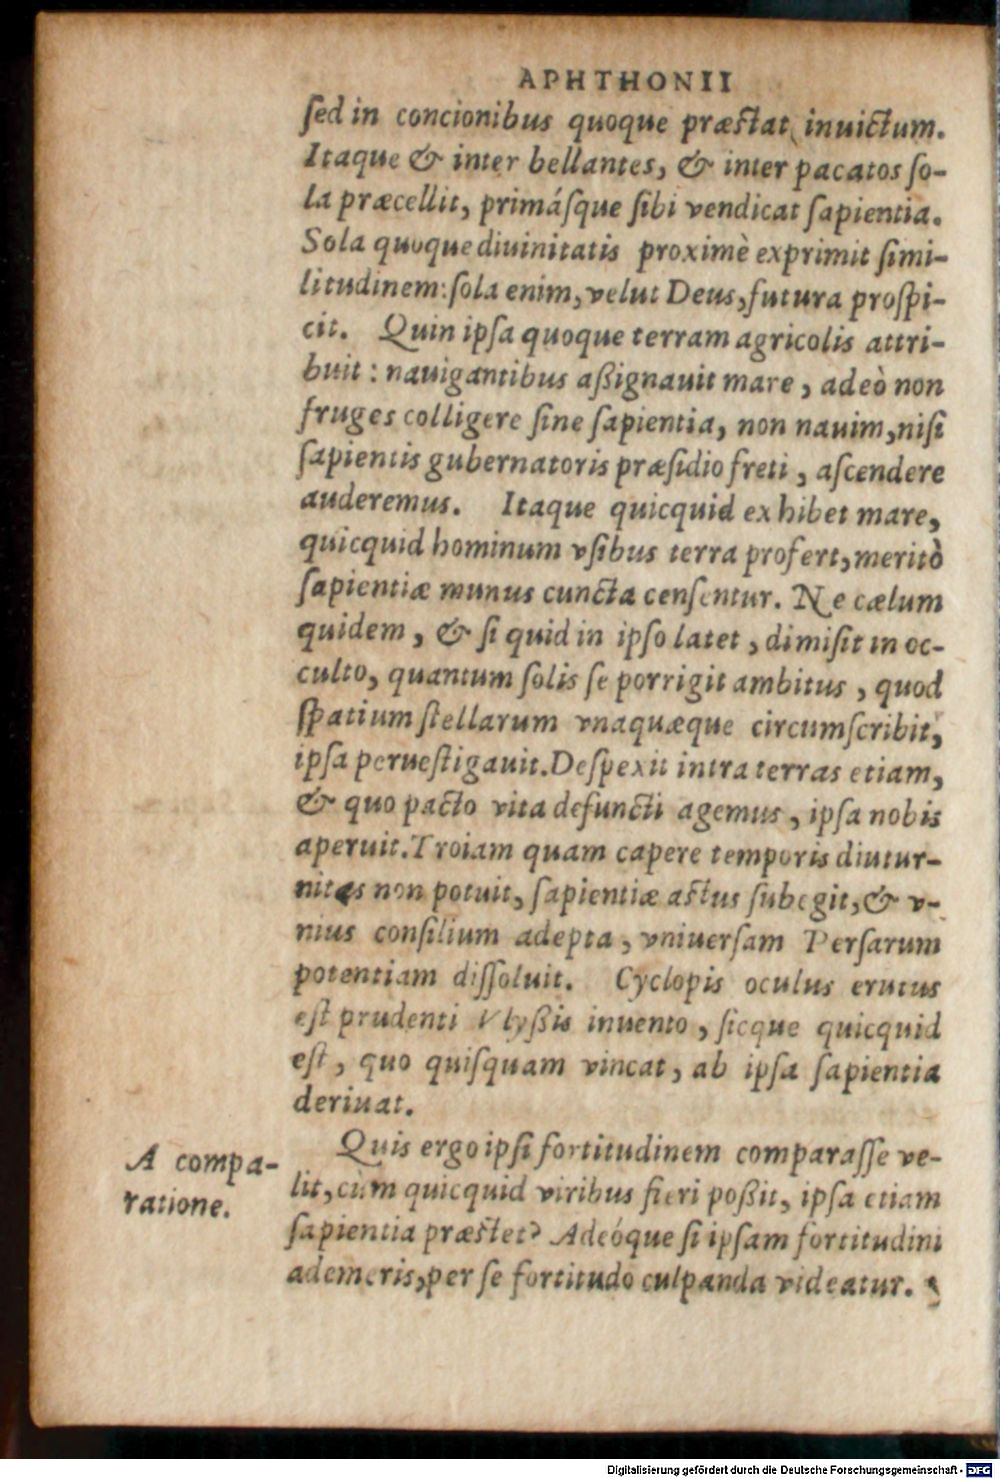 APHTHONII
ſed in concionibus quoque præſtat inuictum.
Itaque & inter bellantes, & inter pacatos ſo-
la præcellit, primáſque ſibi vendicat ſapientia.
Sola quoque diuinitatis proximè exprimit ſimi-
litudinem: ſola enim, velut Deus, futura proſpi-
cit. Quin ipſa quoque terram agricolis attri-
buit : nauigantibus aßignauit mare, adeò non
fruges colligere ſine ſapientia, non nauim, niſi
ſapientis gubernatoris præſidio freti, aſcendere
auderemus. Itaque quicquid exhibet mare,
quicquid hominum vſibus terra profert, meritò
ſapientiæ munus cuncta cenſentur. Ne cælum
quidem, & ſi quid in ipſo latet, dimiſit in oc-
culto, quantum ſolis ſe porrigit ambitus, quod
ſpatium ſtellarum vnaquæque circumſcribit,
ipſa perueſtigauit. Deſpexit intra terras etiam,
& quo pacto vita defuncti agemus, ipſa nobis
aperuit. Troiam quam capere temporis diutur-
nitas non potuit, ſapientiæ aſtus ſubegit, & v-
nius conſilium adepta, vniuerſam Perſarum
potentiam diſſoluit. Cyclopis oculus erutus
eſt prudenti Vlyßis inuento, ſicque quicquid
eſt, quo quiſquam vincat, ab ipſa ſapientia
deriuat.
A compa-
ratione.
Quis ergo ipſi fortitudinem comparaſſe ve-
lit, cùm quicquid viribus fieri poßit, ipſa etiam
ſapientia præſtet? Adeóque ſi ipſam fortitudini
ademeris, per ſe fortitudo culpanda videatur.
Digitalisierung gefördert durch die Deutsche Forschungsgemeinschaft - DFG